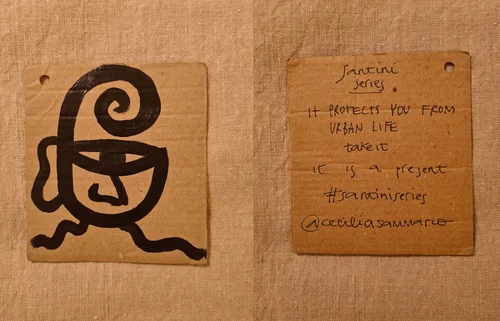 santini
series.
IT PROTECTS YOU FROM
URBAN LIFE
take it
it is a present
#santiniseries
@ceciliasanmarco